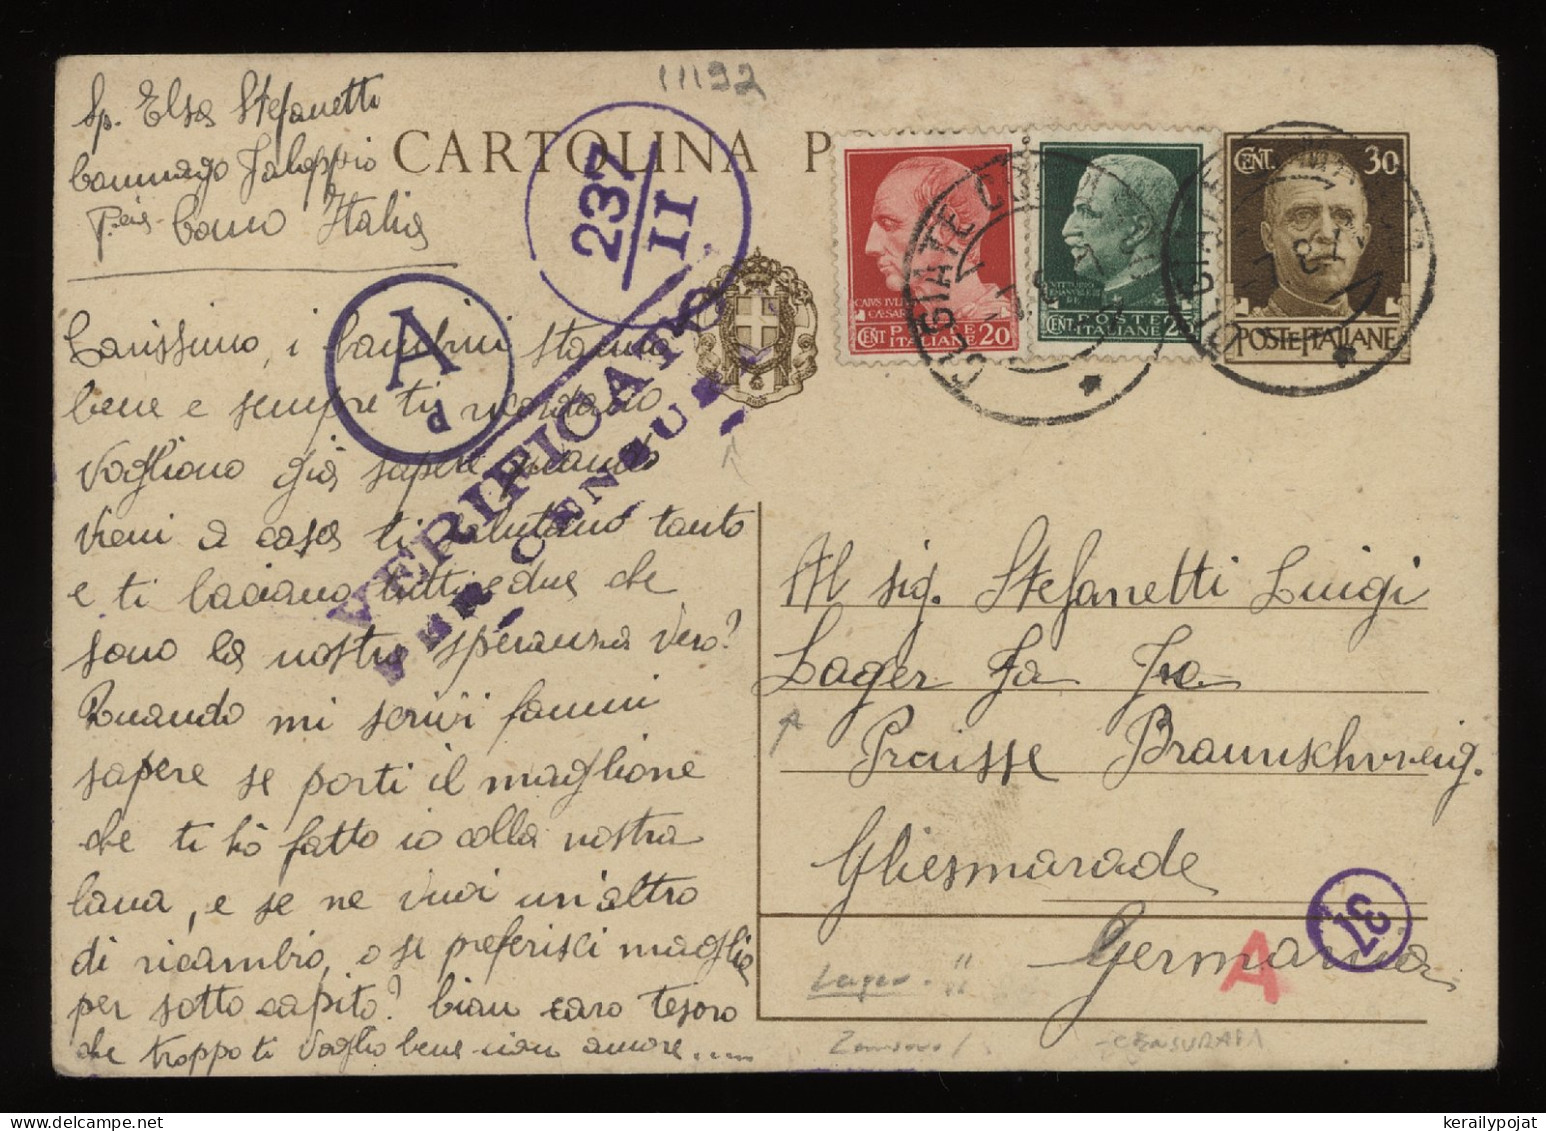 11192
Sp. Elsa Stefanetti
Camnago Faloppio
Italia
CARTOLINA P
237
II
A
P
VERIFICATO
PER CENSU
Carissimo, i bambini stanno
bene e sempre ti ricordano
vogliono già sapere quando
vieni a casa ti salutano tanto
e ti baciano tutti e due che
sono la nostra speranza vero?
Quando mi scrivi fammi
sapere se porti il maglione
che ti hò fatto io colla nostra
lana, e se ne vuoi un'altro
di ricambio, o se preferisci maglie
per sotto capito? bian caro tesoro
che troppo ti voglio bene amore.....
CAIVS IVLIVS
CAESAR
CENT. POSTE
ITALIANE 20
CENT. POSTE
ITALIANE 25
CENT. 30
POSTE ITALIANE
Al sig. Stefanetti Luigi
Lager
Praisse Braunschvveig.
Gliesmarade
Germania
A
37
Lager
CENSURATA
kerailypojat
www.delcampe.net